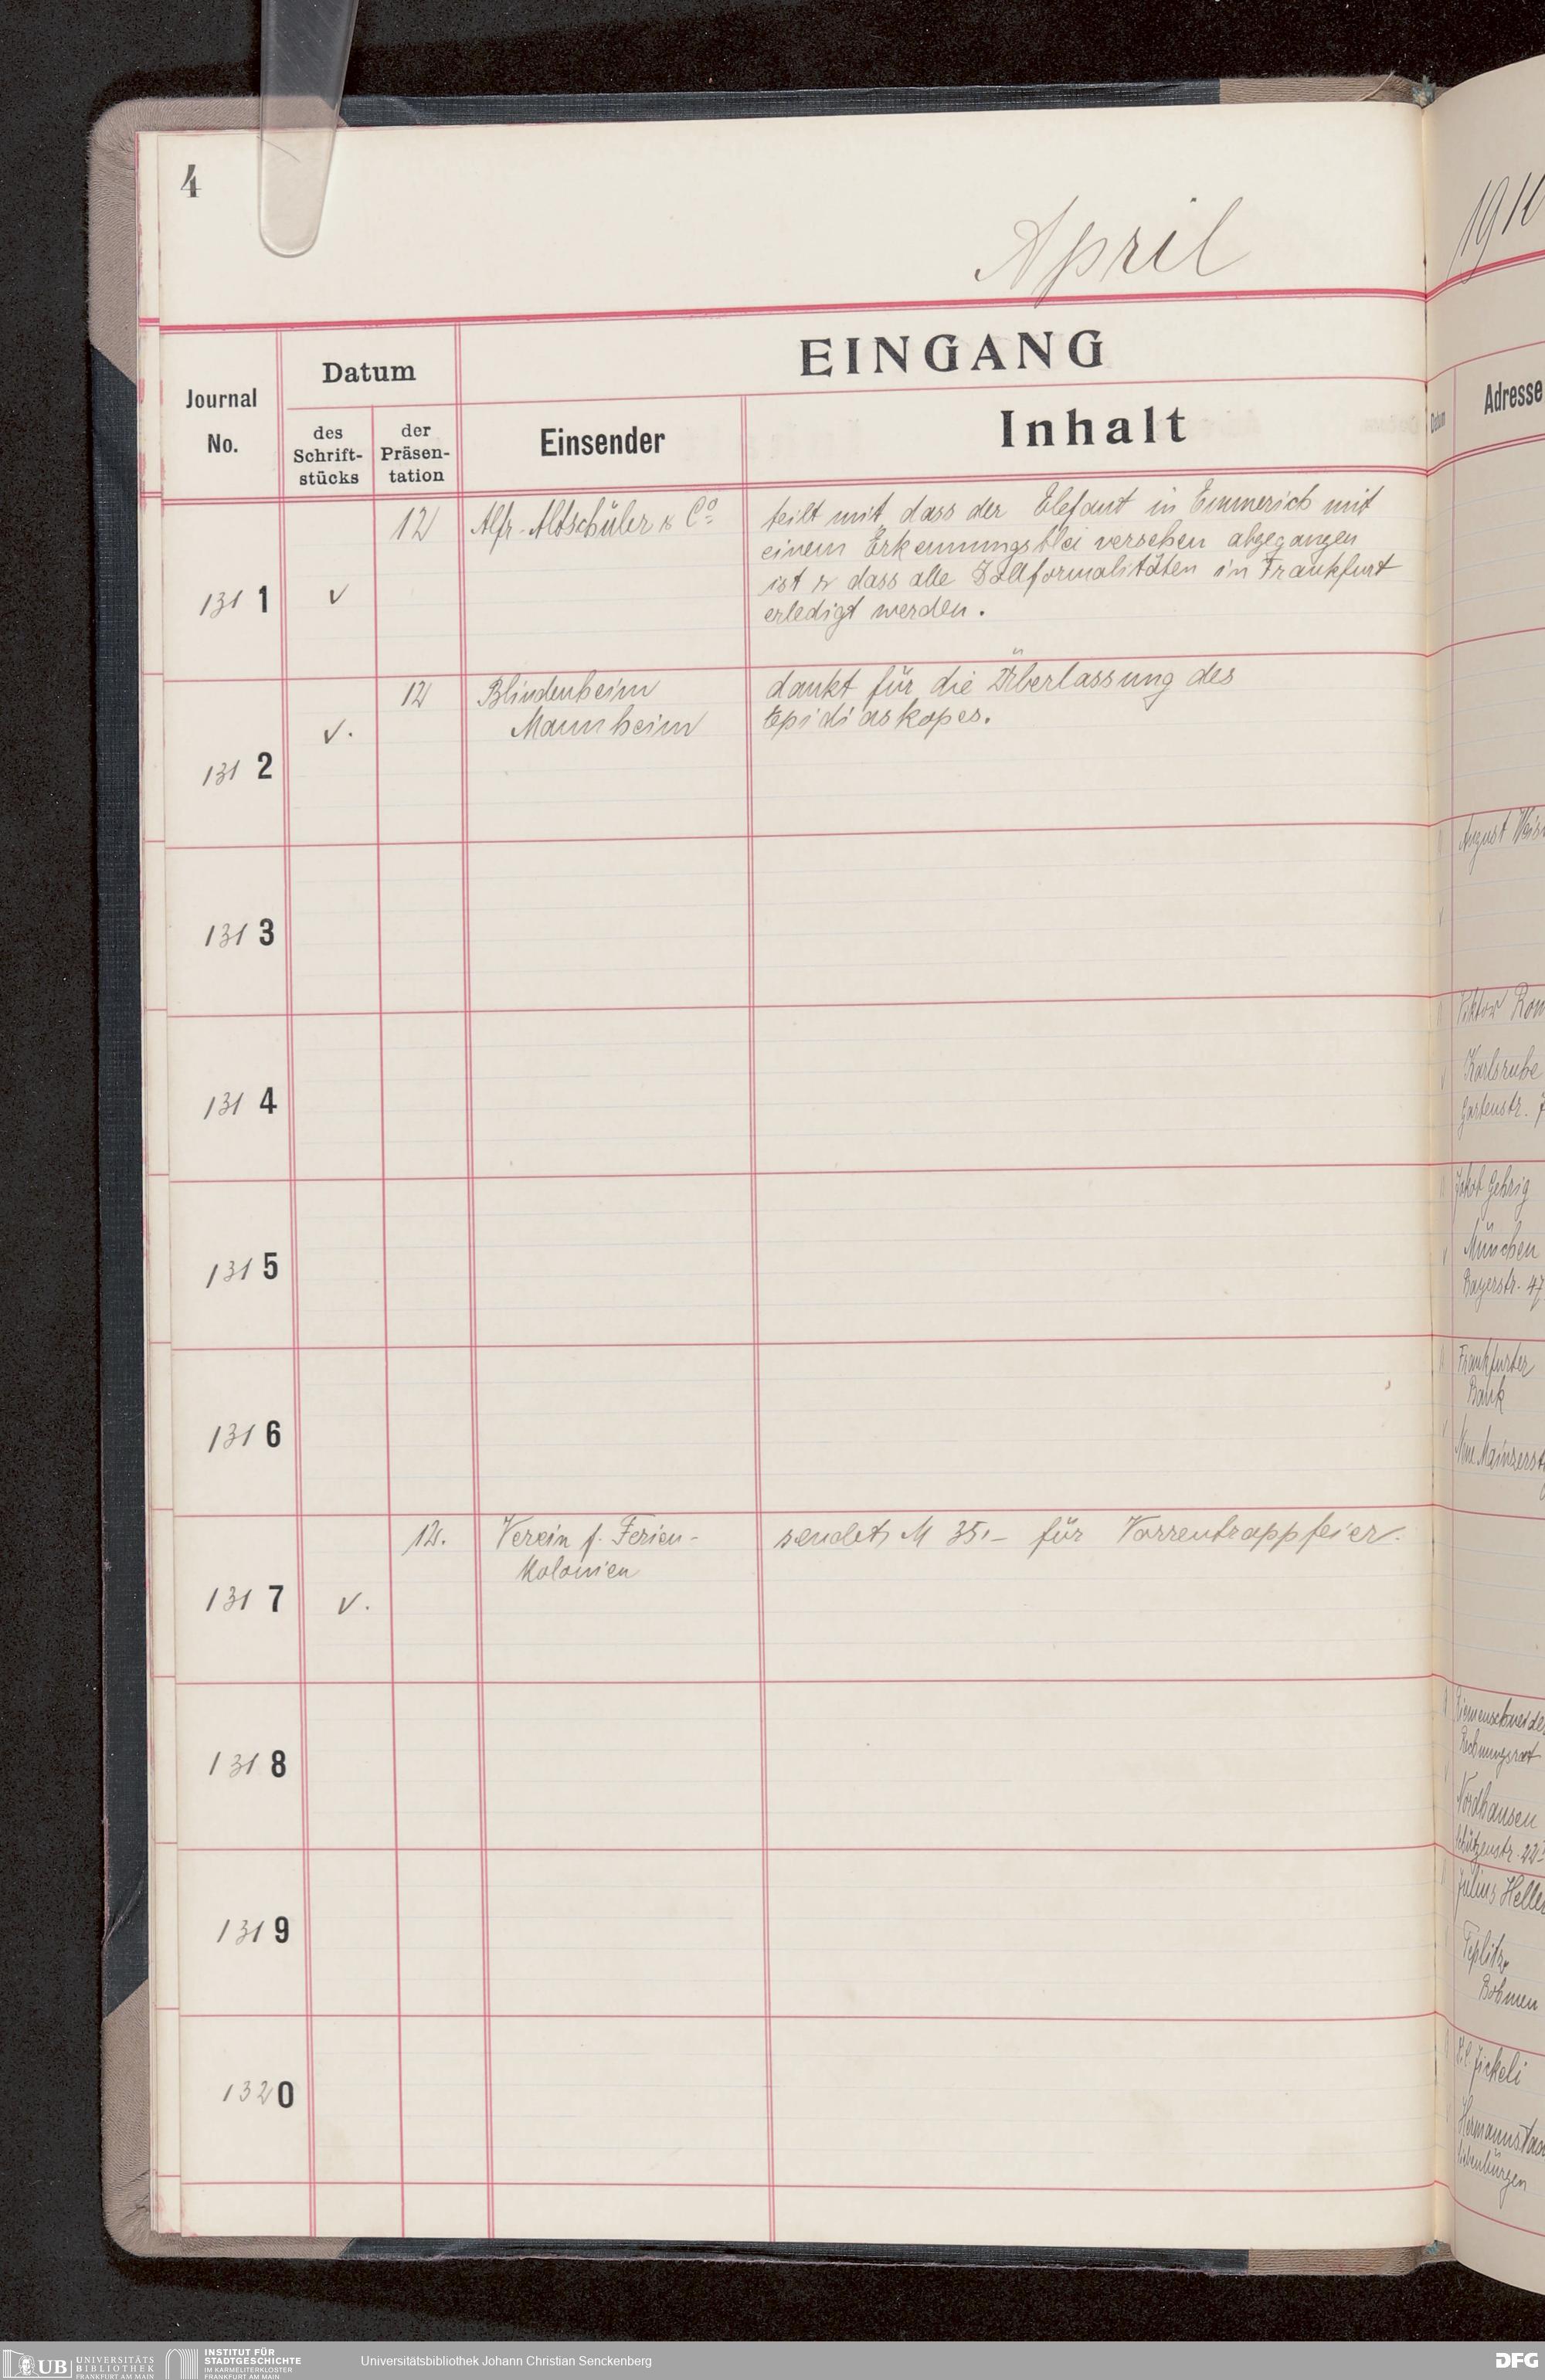 4
April
EINGANG
Journal
No.
Datum
des
Schrift-
stücks
der
Präsen-
tation
Einsender
Inhalt
1311
v
12
Alfr. Altschüler & Co
teilt mit, dass der Elefant in Emmerich mit
einem Erkennungsblei versehen abgegangen
ist & dass alle Zollformalitäten in Frankfurt
erledigt werden.
1312
v.
12
Blindenheim
Mannheim
dankt für die Überlassung des
Epidiaskopes.
1313
1314
1315
1316
1317
v.
12.
Verein f. Ferien-
Kolonien
sendet M 35.- für Varrentrappfeier.
1318
1319
1320
191
Datum
Adresse
August
Viktor
Karlsruhe
Gartenstr. 7
Jakob Gehrig
München
Bayerstr. 47
Frankfurter
Bank
Neue Mainzerst
Riemenschneide
Rechnungsrat
Nordhausen
Schützenstr. 22
Julius Helle
Teplitz
Böhmen
Jickeli
Hermannsta
Siebenbürgen
UB
UNIVERSITÄTS
BIBLIOTHEK
FRANKFURT AM MAIN
INSTITUT FÜR
STADTGESCHICHTE
IM KARMELITERKLOSTER
FRANKFURT AM MAIN
Universitätsbibliothek Johann Christian Senckenberg
DFG